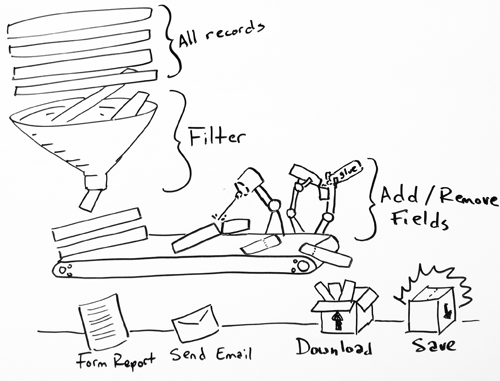 All records
Filter
glue
Add/Remove
Fields
Form Report
Send Email
Download
Save